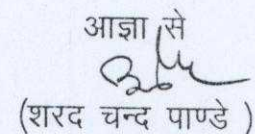 आज्ञा से
(शरद चन्द पाण्डे )